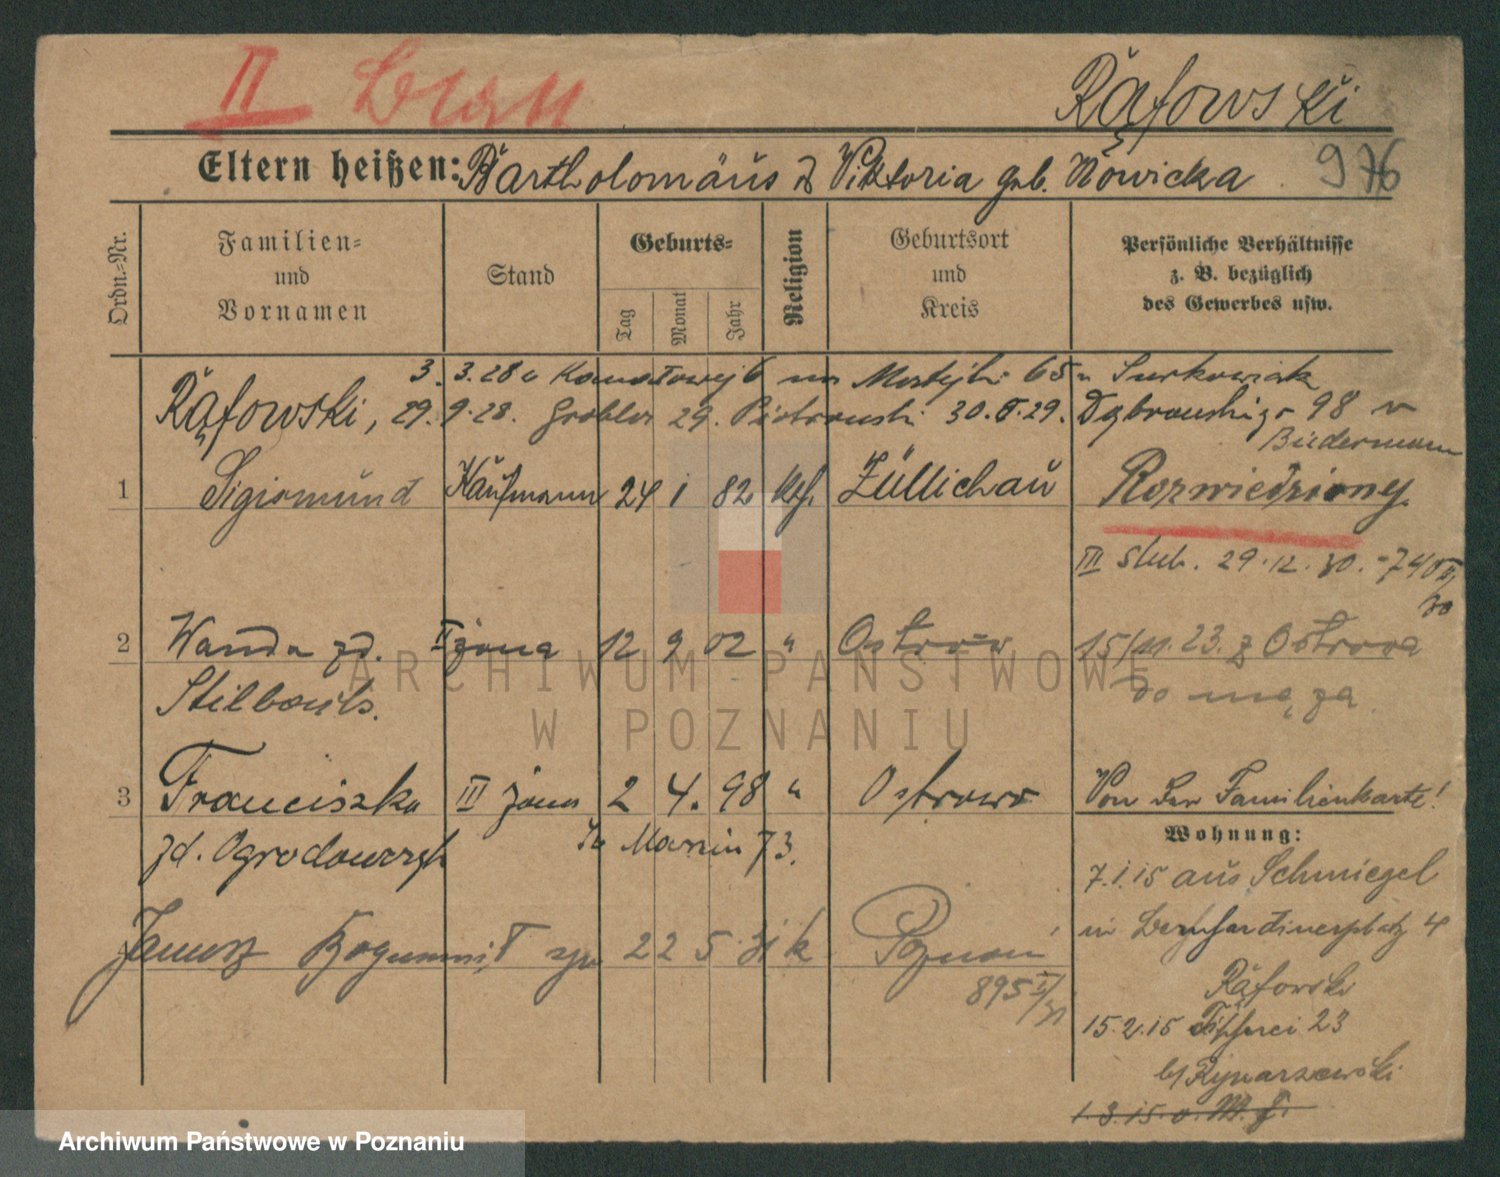 II Blatt
Rąfowski
976
Eltern heißen: Bartholomäus & Viktoria geb. Nowicka
Ordn.=Nr.
Familien=
und
Vornamen
Stand
Geburts=
Tag
Monat
Jahr
Religion
Geburtsort
und
Kreis
Persönliche Verhältnisse
z. B. bezüglich
des Gewerbes usw.
3. 3.28 u 6 65 Surkowiak
Rąfowski, 29. 9.28. Grobla 29. Piotrowski 30. 29. Dąbrowskiego 98
Biedermann
1 Sigismund Kaufmann 24 1 82 Züllichau Rozwiedziony
III slub. 29.12.30. -740
2 Wanda zd. II żona 12 9 02 " Ostrów 15/11.23. z Ostrowa
do męża
3 Franciszka III żona 2 4. 98 " Ostrowo Von der Familienkarte!
zd. Marcin 73.
Wohnung:
7.1.15 aus Schmiegel
Janusz Bogumił syn 22 5 31 k Poznań
in Bernhardinerplatz 4
895 I/31
Rąfowski
15.2.15 23
b/ Rynarzewski
1.3.15.
ARCHIWUM PAŃSTWOWE
W POZNANIU
Archiwum Państwowe w Poznaniu